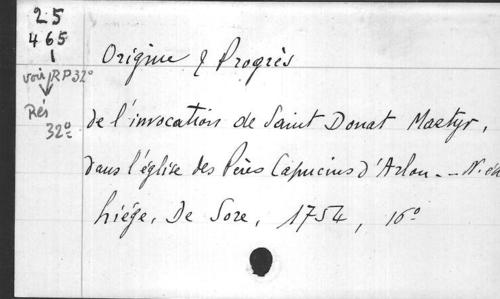 25
465
1
voir RP 32°
Rés
32°
Origine & Progrès
de l'invocation de Saint Donat Martyr,
dans l'église des Pères Capucins d'Arlon. -
Liége, De Sore, 1754, 16°